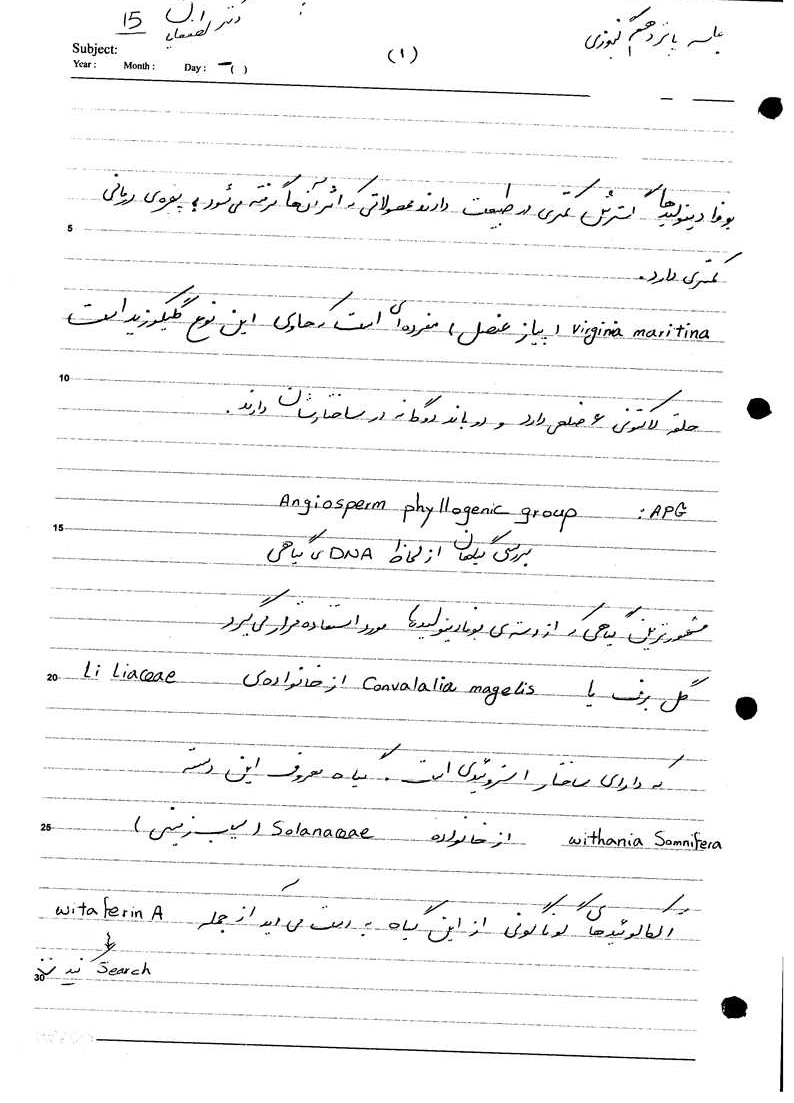 15
Subject:
Year: Month: Day: ( )
(۱)
جلسه پانزدهم
دکتر
بوفادینولیدها استریل کمتری در طبیعت دارند محصولاتی که از آن‌ها گرفته می‌شود، بهره‌ی درمانی
5
کمتری دارد.
Virginia maritina (پیاز عنصل) مفرده‌ای است که حاوی این نوع گلیکوزید است
10
حلقه لاکتونی ۶ ضلعی دارد و دو باند دوگانه در ساختارشان دارند.
APG: Angiosperm phyllogenic group
15
بررسی گیاهان از لحاظ DNA ی گیاهی
مشهورترین گیاهی که از دسته‌ی بوفادینولیدها مورد استفاده قرار می‌گیرد
20
گل برف یا Convalalia magelis از خانواده‌ی Li Liaceae
که دارای ساختار استروئیدی است. گیاه معروف این دسته
25
withania Somnifera از خانواده Solanaceae (سیب زمینی)
آلکالوئیدهای گوناگونی از این گیاه به دست می‌آید از جمله witaferin A
↓
Search کنید
30